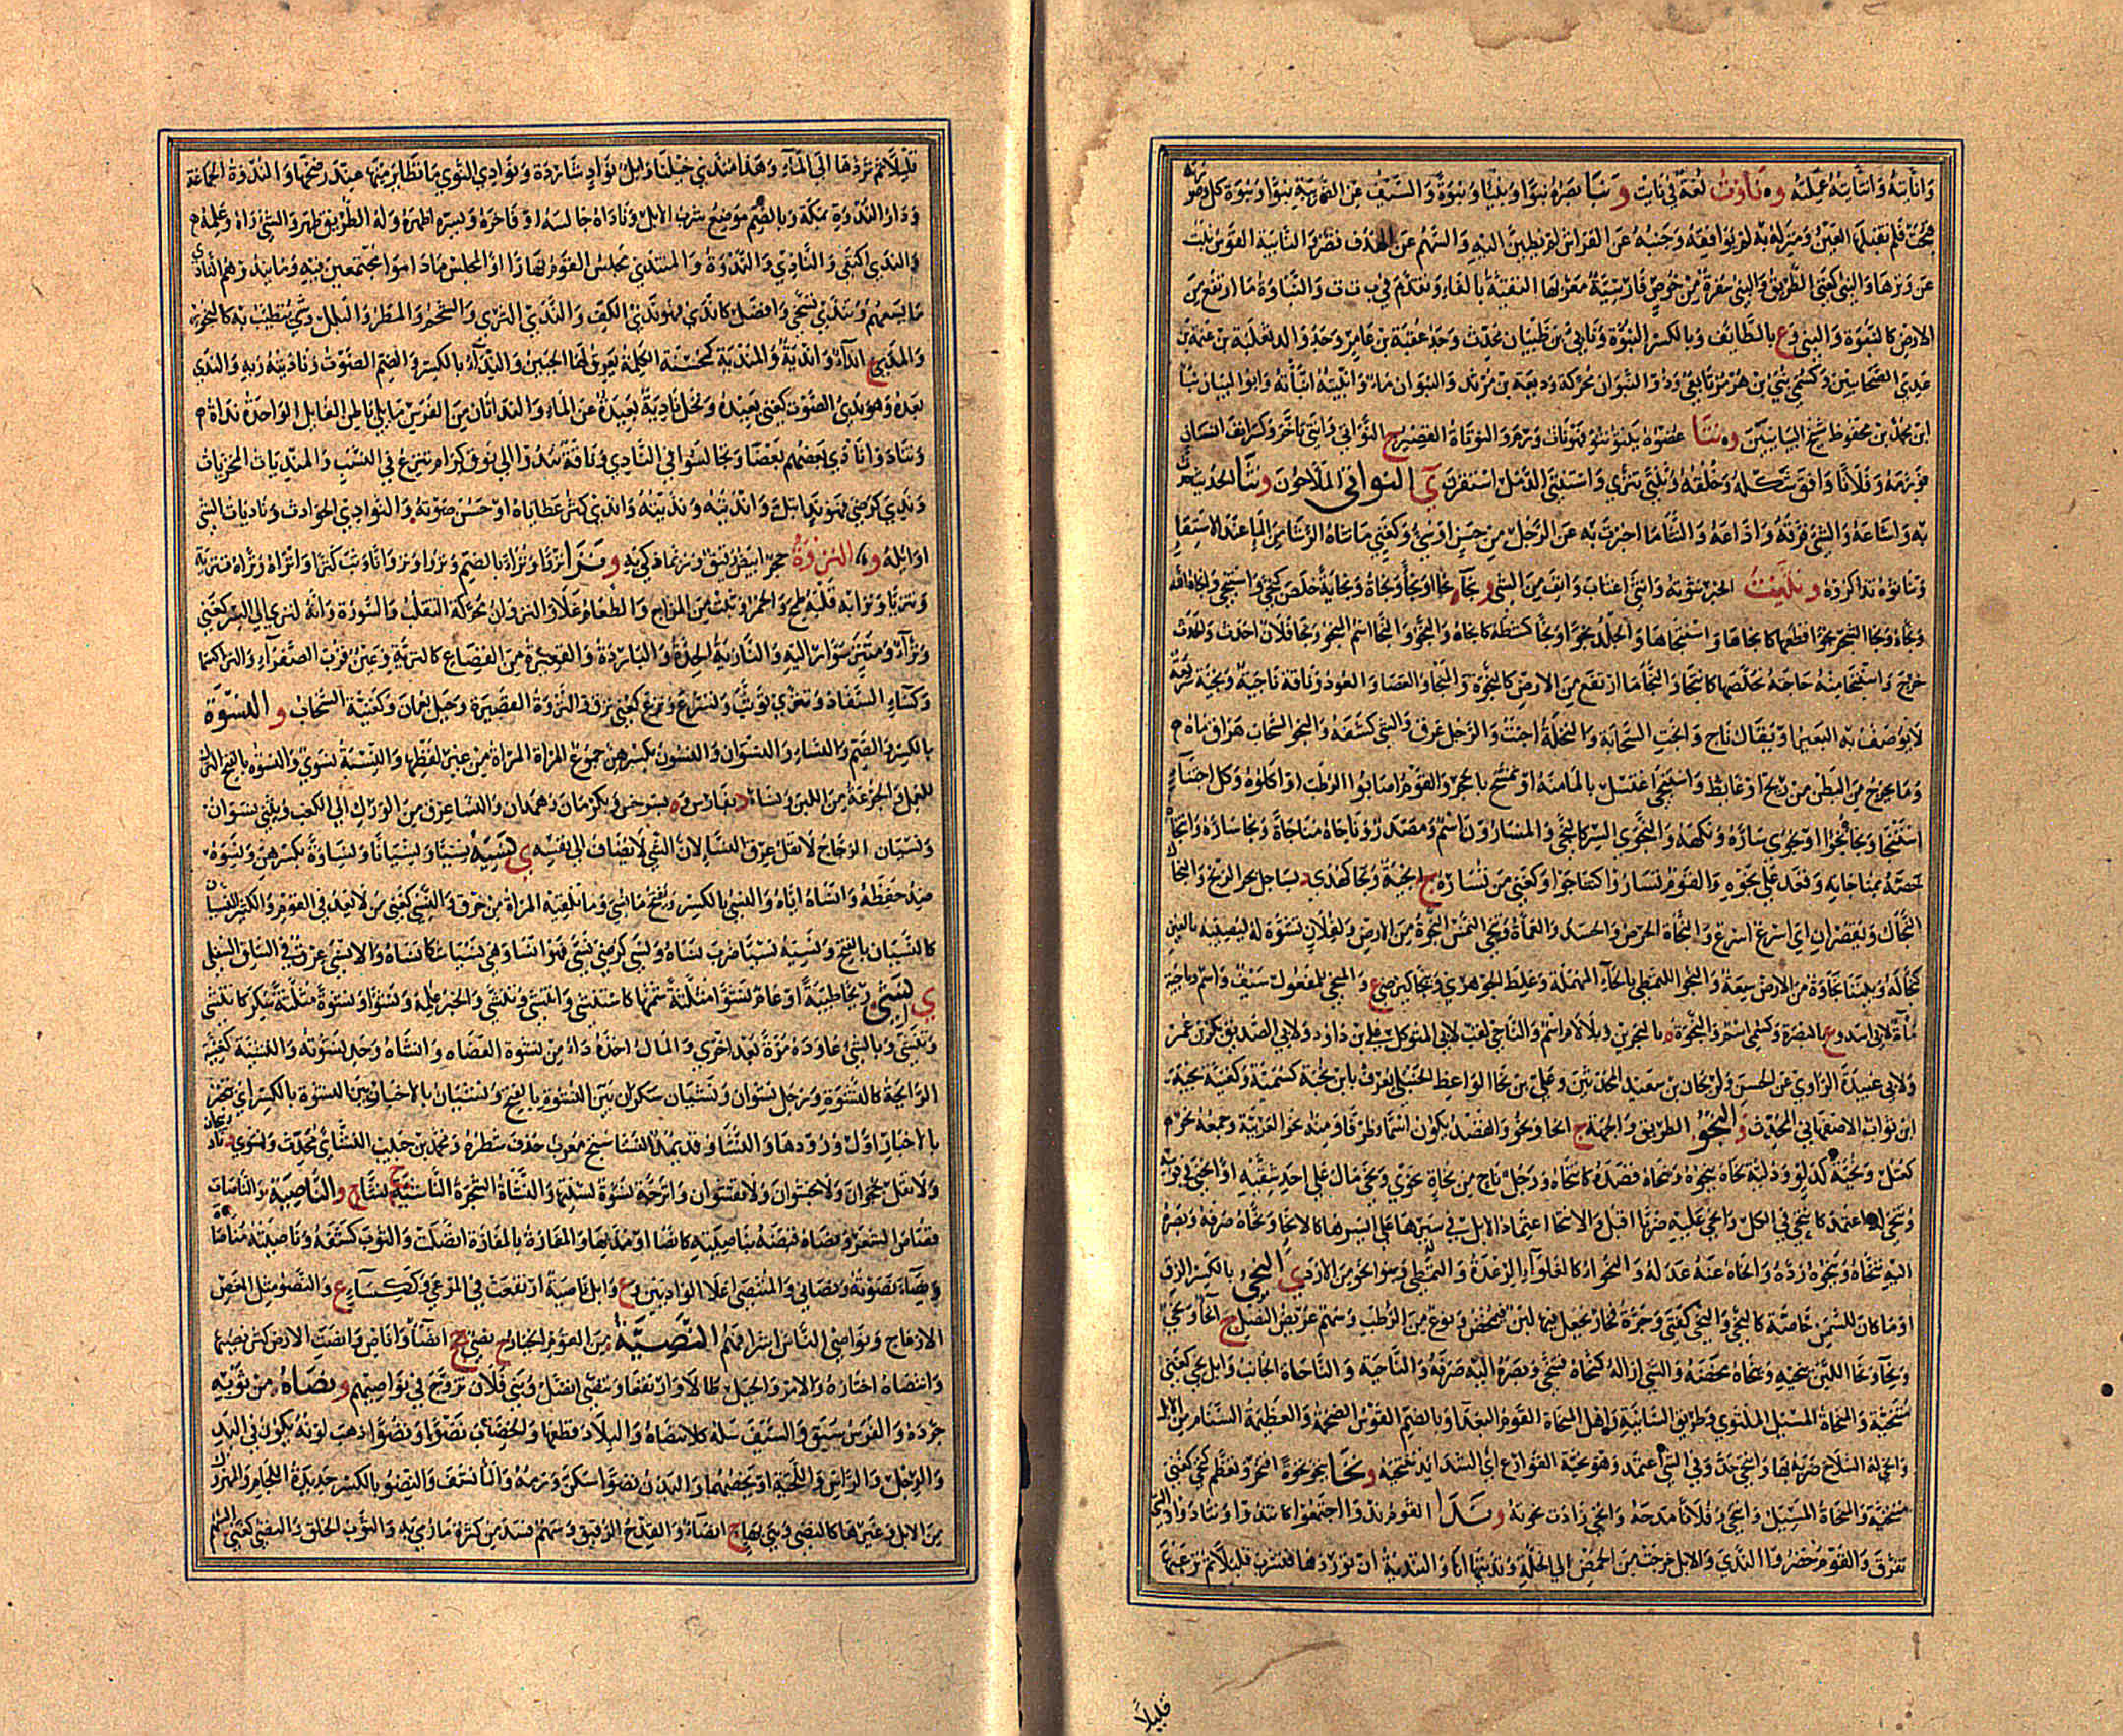 وانابته وانتابته عملته و ناوت لغة في نات و نبا بصره نبوا ونبيا ونبوة والسيف عن الضريبة نبوا ونبوة كل وصورته
قبحت فلم تقبلها العين ومنزله به لم يوافقه وجنبه عن الفراش لم يطمئن اليه والسهم عن الهدف قصر والنابية القوس نبت
عن وترها والنبي كغني الطريق والنبية سفرة من خوص فارسية معربها النفية بالفاء وتقدم في ن ف ف والنباوة ما ارتفع من
الارض كالنبوة والنبي و ع بالطائف وبالكسر النبوة ونابي بن ظبيان محدث وجد عقبة بن عامر وجد والد ثعلبة بن عنمة بن
عدي الصحابيين وكسمي نبي بن هرمز تابعي وذو النبوان محركة وديعة بن مرثد والنبوان ماء وانبيته انباته وابو البيان نبا
ابن محمد بن محفوظ شيخ البيانيين و نتا عضوه ينتو نتوا فهو نات وورم والنوتاة القصير ج النواتي وانتى تاخر وكسر انف انسان
فورمه وفلانا وافق شكله وخلقه وتنتى تبزى واستنتى الدمل استقرن ي النواتي الملاحون و نثا الحديث حدث
به واشاعه والشيء فرقه واذاعه والنثا ما اخبرت به عن الرجل من حسن او سيء وكغني ما نثاه الرشا من الماء عند الاستقاء
وتناثوه تذاكروه و نثيت الخبر نثوته وانثى اغتاب وانف من الشيء و نجا نجوا ونجاء ونجاة ونجاية خلص كنجى واستنجى وانجاه الله
ونجاه ونجا الشجر نجوا قطعها كانجاها واستنجاها والجلد نجوا ونجا كشطه كانجاه والنجو والنجا اسم المنجو ونجا فلان احدث والحدث
خرج واستنجى منه حاجته تخلصها كانتجى والنجا ما ارتفع من الارض كالنجوة والمنجا والعصا والعود وناقة ناجية ونجية سريعة
لا يوصف به البعير او يقال ناج وانجت السحابة والنخلة اجنت والرجل عرق والشيء كشفه والنجو السحاب هراق ماءه
وما يخرج من البطن من ريح او غائط واستنجى اغتسل بالماء منه او تمسح بالحجر والقوم اصابوا الرطب او اكلوه وكل اجتناء
استنجا ونجاه نجوا ونجوى ساره ونكهه والنجوى السر كالنجي والمسارون اسم ومصدر وناجاه مناجاة ونجاء ساره وانتجاه
خصه بمناجاته وقعد على نجوة والقوم تساروا كتناجوا وكغني من تساره ج انجية ونجا كهذى د بساحل بحر الزنج والنجاك
النجاك ويقصران اي اسرع اسرع والنجاة الحرص والحسد والكماة وتنجى التمس النجوة من الارض ولفلان تشوه له ليصيبه بالعين
كنجا له وبيننا نجاوة من الارض سعة والنجو التمطي بالحاء المهملة وغلط الجوهري وينجا كيرضى ع والمنجى للمفعول سيف واسم وناجية
ماءة لبني اسد و ع بالبصرة وكسمي اسم والنجوة ة بالبحرين وبلا لام اسم والناجي لقب لابي المتوكل علي بن داود ولابي الصديق بكر بن عمر
ولابي عبيدة الراوي عن الحسن ولريحان بن سعيد المحدثين وعلي بن نجا الواعظ الحنبلي يعرف بابن نجية كسمية وكغنية نجية
ابن ثواب الاصفهاني المحدث و النحو الطريق والجهة ج انحاء ونحو والقصد يكون اسما وظرفا ومنه نحو العربية وجمعه نحو
كعتل ونحية كدلو ودلية نحاه ينحوه وينحاه قصده كانتحاه ورجل ناح من نحاة نحوي ونحا مال على احد شقيه او انحنى في قوسه
وتنحى له اعتمد كانتحى في الكل وانحى عليه ضربا اقبل والانتحا اعتماد الابل في سيرها على ايسرها كالانحاء ونحاه صرفه وبصره
اليه ينحاه وينحوه رده وانحاه عنه عدله والنحواء كالغلواء الرعدة والتمطي وبنو نحو من الازد ي النحي بالكسر الزق
او ما كان للسمن خاصة كالنحي والنحى كفتى وجرة فخار يجعل فيها لبن ليمخض ونوع من الرطب وسهم عريض النصل ج انحاء ونحي
ونحاء ونحا اللبن ينحيه وينحاه مخضه والشيء ازاله كنحاه فتنحى وبصره اليه صرفه والناحية والناحاة الجانب وابل نحي كغني
متنحية والمنحاة المسيل الملتوي وطريق السانية واهل المنحاة القوم البعدا وبالضم القوس الضخمة والعظيمة السنام من الابل
وانحى له السلاح ضربه بها وانتحى جد وفي الشيء اعتمد وهو نحية القوارع اي الشدائد تنتحيه و نخا ينخو نخوة افتخر وتعظم كنخي كعني
متنحية والمنحاة المسيل وانتحى وفلانا مدحه وانخى زادت نخوته و ندا القوم ندوا اجتمعوا كانتدوا وتنادوا والشيء
تفرق والقوم حضروا الندي والابل خرجت من الحمض الى الخلة ونديتها انا والتندية ان توردها فتشرب قليلا ثم ترعيها
قليلا
قليلا ثم تردها الى الماء وهذا مندى خيلنا وابل نواد شاردة ونوادي النوى ما تطاير منها عند رضخها والندوة الجماعة
ودار الندوة بمكة وبالضم موضع شرب الابل وناداه جالسه او فاخره وبسره اظهره وله الطريق ظهر والشيء رآه وعلمه
والندي كغني والنادي والندوة والمنتدى مجلس القوم نهارا او المجلس ما داموا مجتمعين فيه وما يندوهم النادي
ما يسعهم وتندى تسخى وافضل كاندى فهو ندي الكف والندى الثرى والشحم والمطر والبلل وشيء يتطيب به كالبخور
والكلا ج انداء واندية والمندية كمحسنة الكلمة يعرق لها الجبين والنداء بالكسر والضم الصوت وناديته وبه والندى
بعده وهو ندي الصوت كغني بعيده ونخل نادية بعيدة عن الماء والنداتان من الفرس ما يلي باطن الفائل الواحدة نداة
وتنادوا نادى بعضهم بعضا وتجالسوا في النادي وناقة تندو الى نوق كرام تنزع في النسب والمنديات المخزيات
وندي كرضي فهو ند ابتل وانديته ونديته واندى كثر عطاياه او حسن صوته والنوادي الحوادث وناديات الشيء
اوائله و النزوة حجر ابيض رقيق وربما ذكي به و نزا نزوا ونزاء بالضم ونزوا ونزوانا وثب كنزى وانزاه ونزاه تنزية
وتنزيا ونزا به قلبه طمح والخمر وثبت من المزاج والطعام غلا والنزوان محركة التقلب والسورة وانه لنزي الى الشر كغني
ونزاء ومنتز سوار اليه والنازية الحدة والباردة والقعيرة من القصاع كالنزية وعين قرب الصفراء والنزا كسما
وكساء السفاد وتنزى توثب وتسرع ونزع كعني نزف والنزوة القصيرة وجبل بعمان وكغنية السحاب و النسوة
بالكسر والضم والنساء والنسوان والنسون بكسرهن جموع المراة المراة من غير لفظها والنسبة نسوي والنسوة بالفتح الترك
للعمل والجرعة من اللبن ونسا د بفارس و ة بسرخس وبكرمان وهمدان والنسا عرق من الورك الى الكعب ويثنى نسوان
ونسيان الزجاج لا تقل عرق النسا لان الشيء لا يضاف الى نفسه ي نسيه نسيا ونسيانا ونساوة بكسرهن ونسوة
ضد حفظه وانساه اياه والنسي بالكسر ويفتح ما نسي وما تلقيه المراة من خرق والنسي كغني من لا يعد في القوم والكثير النسيان
كالنسيان بالفتح ونسيه نسيا ضرب نساه ونسي كرضي نسى فهو انسا وهي نسياء شكا نساه والانسي عرق في الساق السفلى
ي نشي ريحا طيبة او عام نشوة مثلثة شمها كاستنشى وانتشى وتنشى والخبر علمه ونشوا ونشوة مثلثة سكر كانتشى
وتنشى وبالشيء عاوده مرة بعد اخرى والمال اخذه داء من نشوة العضاه وانشاه وجد نشوته والنشية كغنية
الرائحة كالنشوة ورجل نشوان ونشيان سكران بين النشوة بالفتح ونشيان بالاخبار بين النشوة بالكسر اي يتخبر
بالاخبار اول ورودها والنشا وقد يمد النشاستج معرب حذف شطره ومحمد بن حبيب النشائي محدث ونشوى د
ولا تقل نخجوان ولا نقشوان وانزخت نشوة نسلتها والنشاة الشجرة اليابسة ج نشا و الناصية والناصاة
قصاص الشعر ونصاه قبضه بناصيته كانصا او مد بها والمفازة بالمفازة اتصلت والثوب كشفه وناصيته مناصاة
ونصاء نصوته ونصاني والمنتصى اعلا الواديين و ع وابل ناصية ارتفعت في المرعى وككساء ع والنصو مثل المغص
الازعاج ونواصي الناس اشرافهم النصية من القوم الخيار ج نصي جج انصاء واناص وانصت الارض كثر نصيها
وانتصاه اختاره والامر والجبل طالا وارتفعا وتنصى اتصل وبني فلان تزوج في نواصيهم و نضاه من ثوبه
جرده والفرس سبق والسيف سله كانتضاه والبلاد قطعها والخضاب نضوا ونضوا ذهب لونه يكون في اليد
والرجل والراس واللحية او يخصهما والبدن نضوا سكن ورمه والماء نشف والنضو بالكسر حديدة اللجام والمهزول
من الابل وغيرها كالنضي وهي بهاء ج انضاء والقدح الرقيق وسهم فسد من كثرة ما رمي به والثوب الخلق والنضي كغني السهم